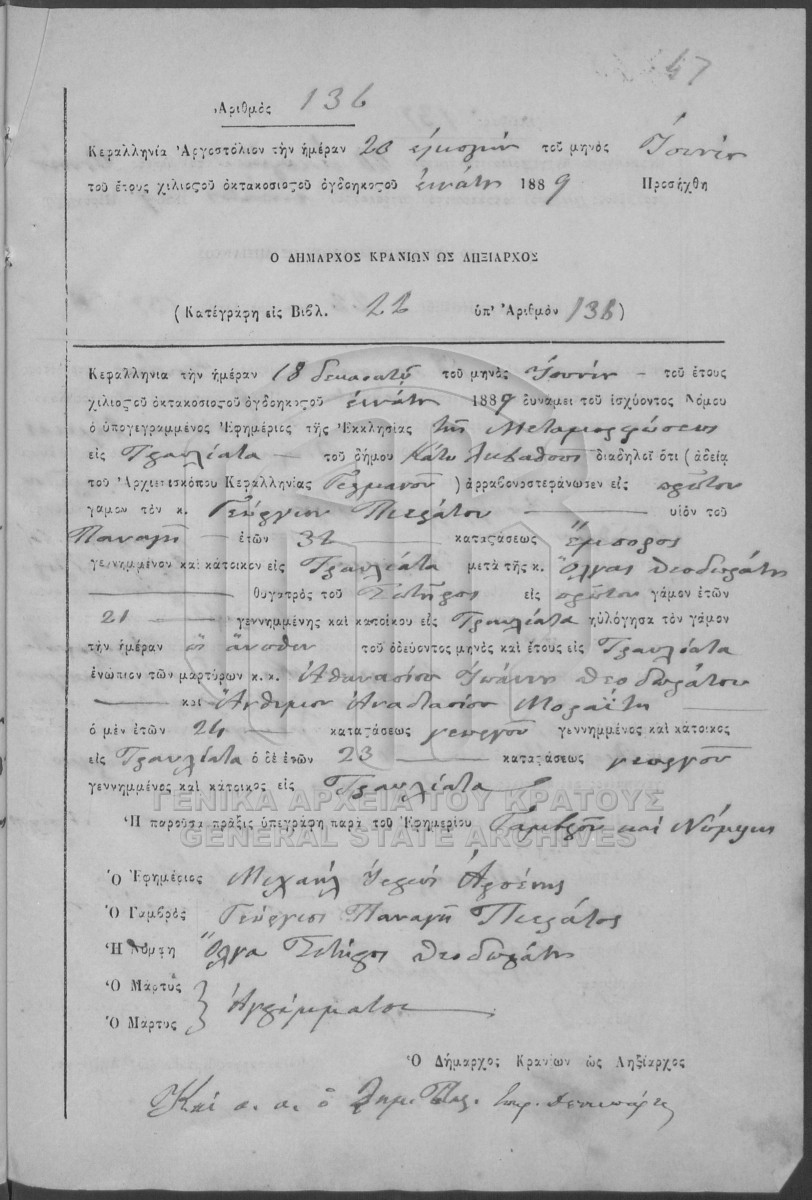 47
Ἀριθμὸς 136
Κεφαλληνία Ἀργοστόλιον τὴν ἡμέραν 20 τοῦ μηνὸς Ἰουνίου
τοῦ ἔτους χιλιοςοῦ ὀκτακοσιοςοῦ ὀγδοηκοςοῦ ἐννάτου 1889 Προσήχθη
Ὁ ΔΗΜΑΡΧΟΣ ΚΡΑΝΙΩΝ ΩΣ ΛΗΞΙΑΡΧΟΣ
(Κατεγράφη εἰς Βιβλ. 22 ὑπ' Ἀριθμὸν 136)
Κεφαλληνια τὴν ἡμέραν 18 δεκάτην τοῦ μηνὸς Ἰουνίου τοῦ ἔτους
χιλιοςοῦ ὀκτακοσιοςοῦ ὀγδοηκοςοῦ ἐννάτου 1889 δυνάμει τοῦ ἰσχύοντος Νόμου
ὁ ὑπογεγραμμένος Ἐφημέριος τῆς Ἐκκλησίας τῆς Μεταμορφώσεως
εἰς Τρωϊανάτα τοῦ δήμου διαδηλοῖ ὅτι (ἀδείᾳ
τοῦ Ἀρχιεπισκόπου Κεφαλληνίας Γερμανοῦ) ἀρραβονοστεφάνωσεν εἰς πρῶτον
γαμον τὸν κ. Γεώργιον υἱὸν τοῦ
Παναγῆ ἐτῶν 32 καταςάσεως Ἔμπορος
γεννημένον καὶ κάτοικον εἰς μετὰ τῆς κ. Ὄλγας Θεοδωράτη
θυγατρὸς τοῦ Σωτῆρος εἰς πρῶτον γάμον ἐτῶν
21 γεννημμένης καὶ κατοίκου εἰς ηὐλόγησα τὸν γάμον
τὴν ἡμέραν ὡς ἄνωθεν τοῦ ὁδεύοντος μηνὸς καὶ ἔτους εἰς
ἐνώπιον τῶν μαρτύρων κ.κ. Ἀθανασίου Ἰωάννη Θεοδωράτου
καὶ Ἄνθιμου Ἀναστασίου Μοραΐτη
ὁ μὲν ἐτῶν 24 καταςάσεως γεωργοῦ γεννημμένος καὶ κάτοικος
εἰς ὁ δὲ ἐτῶν 23 καταςάσεως γεωργοῦ
γεννημμένος καὶ κάτοικος εἰς
Ἡ παροῦσα πρᾶξις ὑπεγράφη παρὰ τοῦ Ἐφημερίου Γαμβροῦ καὶ Νύμφης
ΓΕΝΙΚΑ ΑΡΧΕΙΑ ΤΟΥ ΚΡΑΤΟΥΣ
GENERAL STATE ARCHIVES
Ὁ Ἐφημέριος Μιχαὴλ Ἱερεὺς Ἀρσένης
Ὁ Γαμβρὸς Γεώργιος Παναγῆ
Ἡ Νύμφη Ὄλγα Σωτῆρος Θεοδωράτη
Ὁ Μάρτυς
Ὁ Μάρτυς Ἀγράμματοι
Ὁ Δήμαρχος Κρανίων ὡς Ληξίαρχος
Καὶ α. α. ὁ Δημ. Παρ.